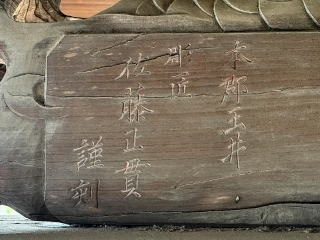 本郡玉井
彫匠
佐藤正貫
謹刻